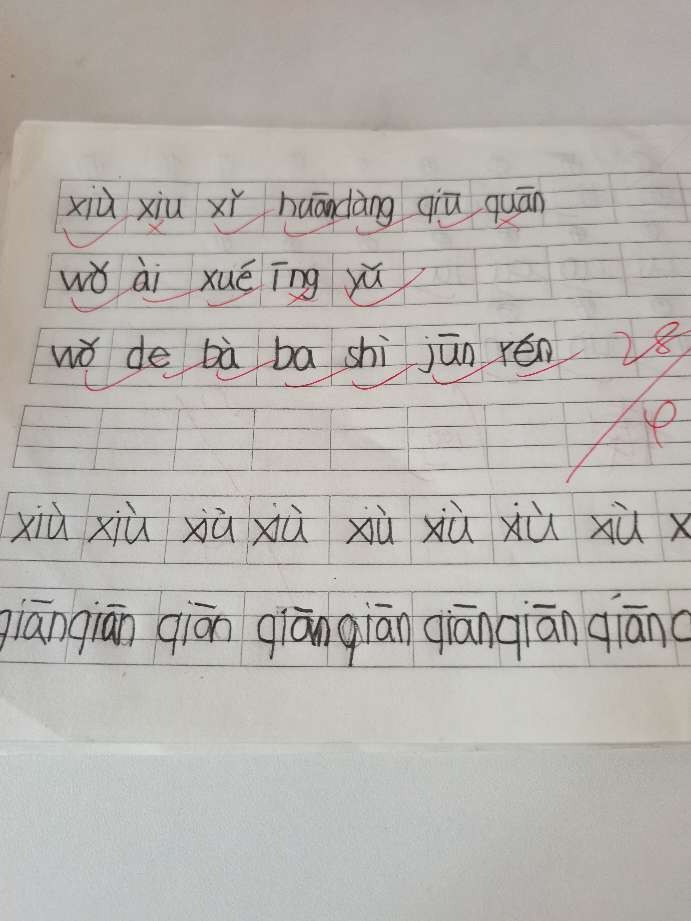 xiù xiu xǐ huān dàng qiū quān
wǒ ài xué īng yǔ
wǒ de bà ba shì jūn rén 28
xiù xiù xiù xiù xiù xiù xiù xiù x
qiān qiān qiān qiān qiān qiān qiān qiān